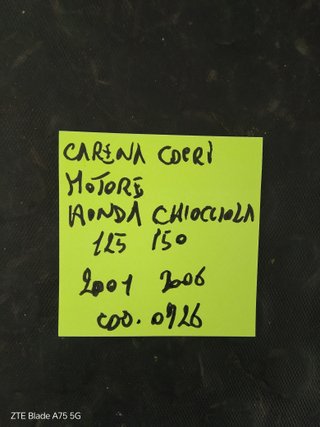 CARENA COPRI
MOTORE
HONDA CHIOCCIOLA
125 150
2001 2006
COD. 0726
ZTE Blade A75 5G